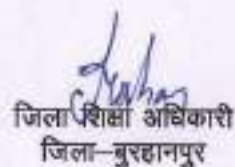 जिला शिक्षा अधिकारी
जिला–बुरहानपुर